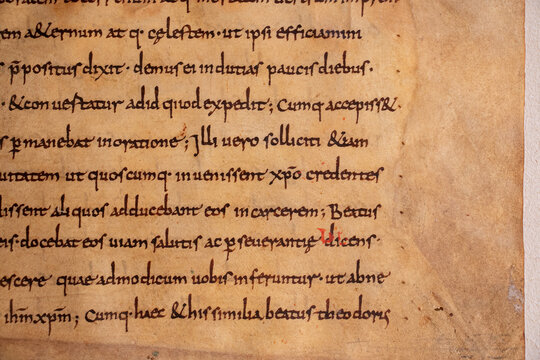 em a&ernum at q· cęlestem· ut ipsi efficiamini
p̄positus dixit· demus ei indutias paucis diebus·
· & convestatur ad id quod expedit; Cumq· accepiss&·
s p manebat in oratione; Illi vero solliciti &iam
vitatem ut quoscumq· invenissent xp̄o credentes
dissent aliquos adducebant eos in carcerem; Beatus
eis· docebat eos viam salutis ac pseverantię dicens·
escere quae ad modicum vobis inferuntur· ut abne
ihm̄ xpm̄; Cumq· haec & his similia beatus theodoris